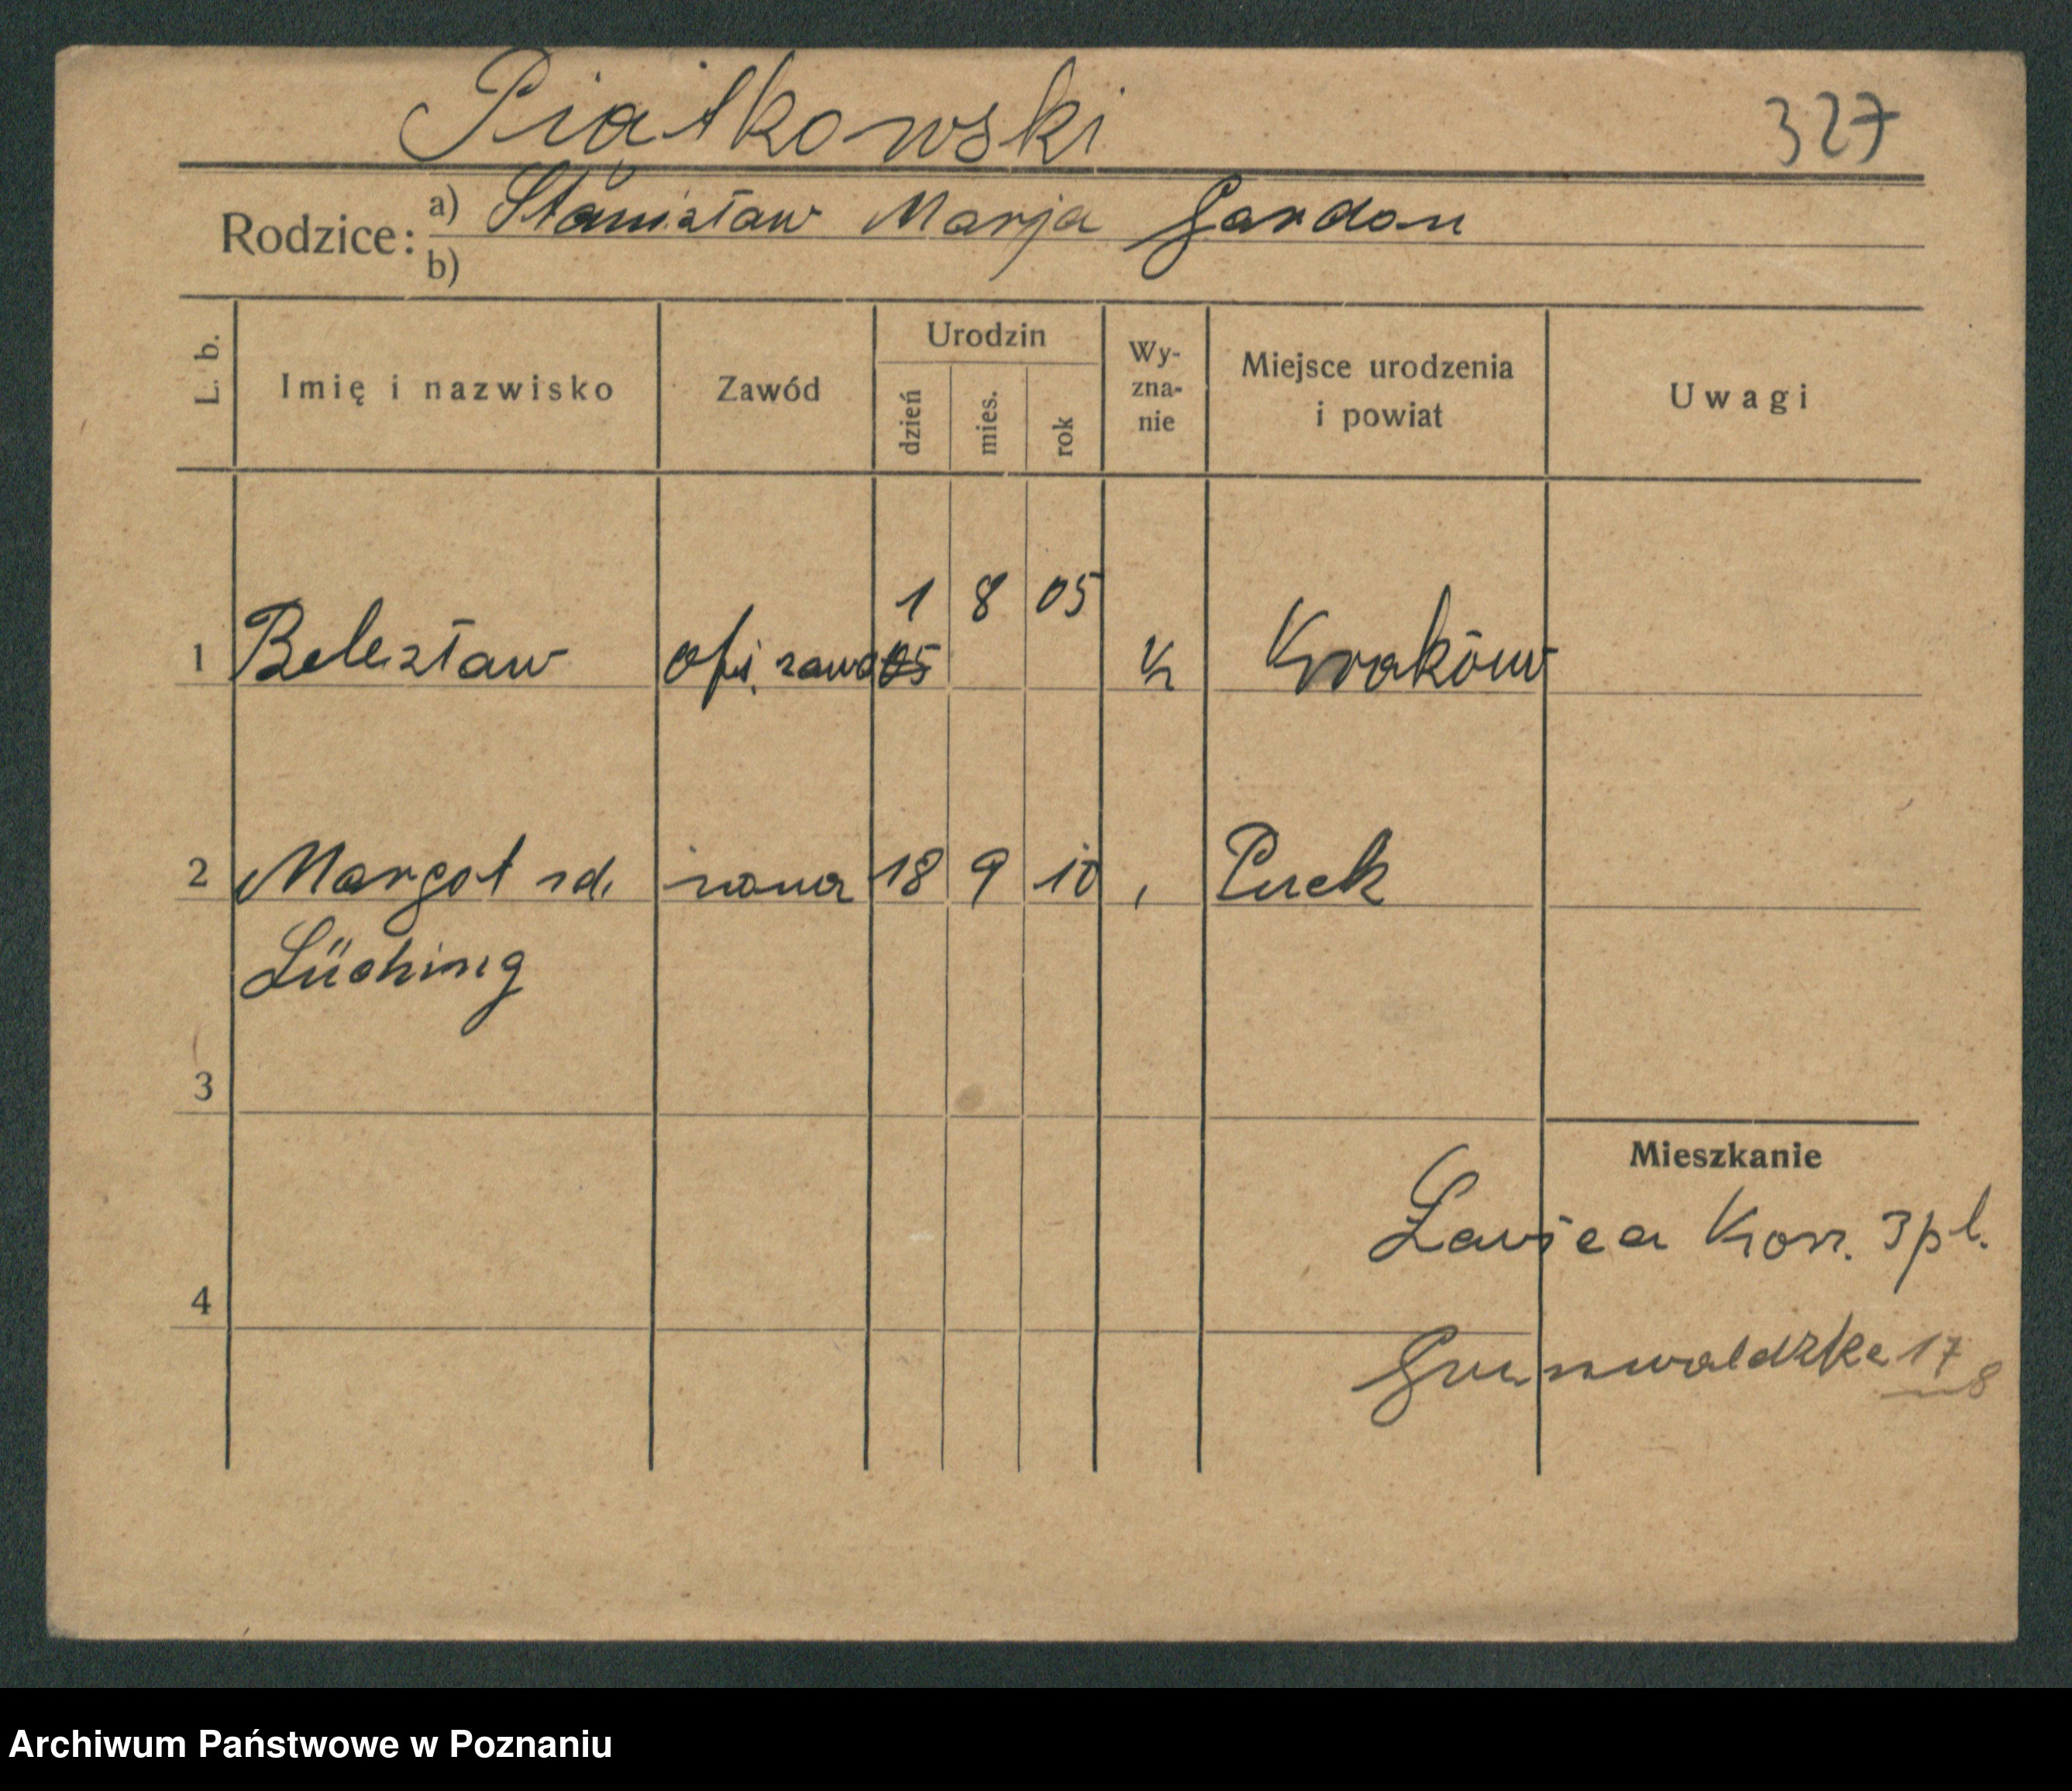 Piątkowski 327
Rodzice: a) Stanisław Marja Gardon
b)
L. b. Imię i nazwisko Zawód Urodzin dzień mies. rok Wy-zna-nie Miejsce urodzenia i powiat Uwagi
1 8 05
1 Bolesław ofi. zawo 05 K Kraków
2 Margot zd. żona 18 9 10 , Puck
Lüching
3
Mieszkanie
Ławica Kor. 3 pl.
4
Grunwaldzka 17
8
Archiwum Państwowe w Poznaniu